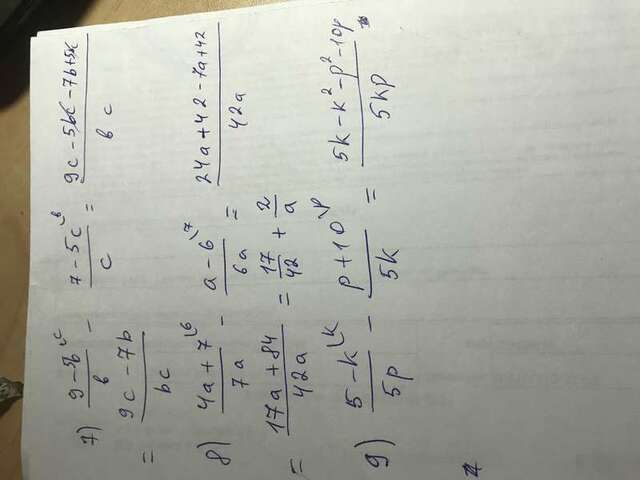 7) (9 - 5b)/b \c - (7 - 5c)/c \b = (9c - 5bc - 7b + 5bc)/(b c)
= (9c - 7b)/(bc)
8) (4a + 7)/(7a) \6 - (a - 6)/(6a) \7 = (24a + 42 - 7a + 42)/(42a)
= (17a + 84)/(42a) = 17/42 + 2/a
9) (5 - k)/(5p) \k - (p + 10)/(5k) \p = (5k - k² - p² - 10p)/(5kp)